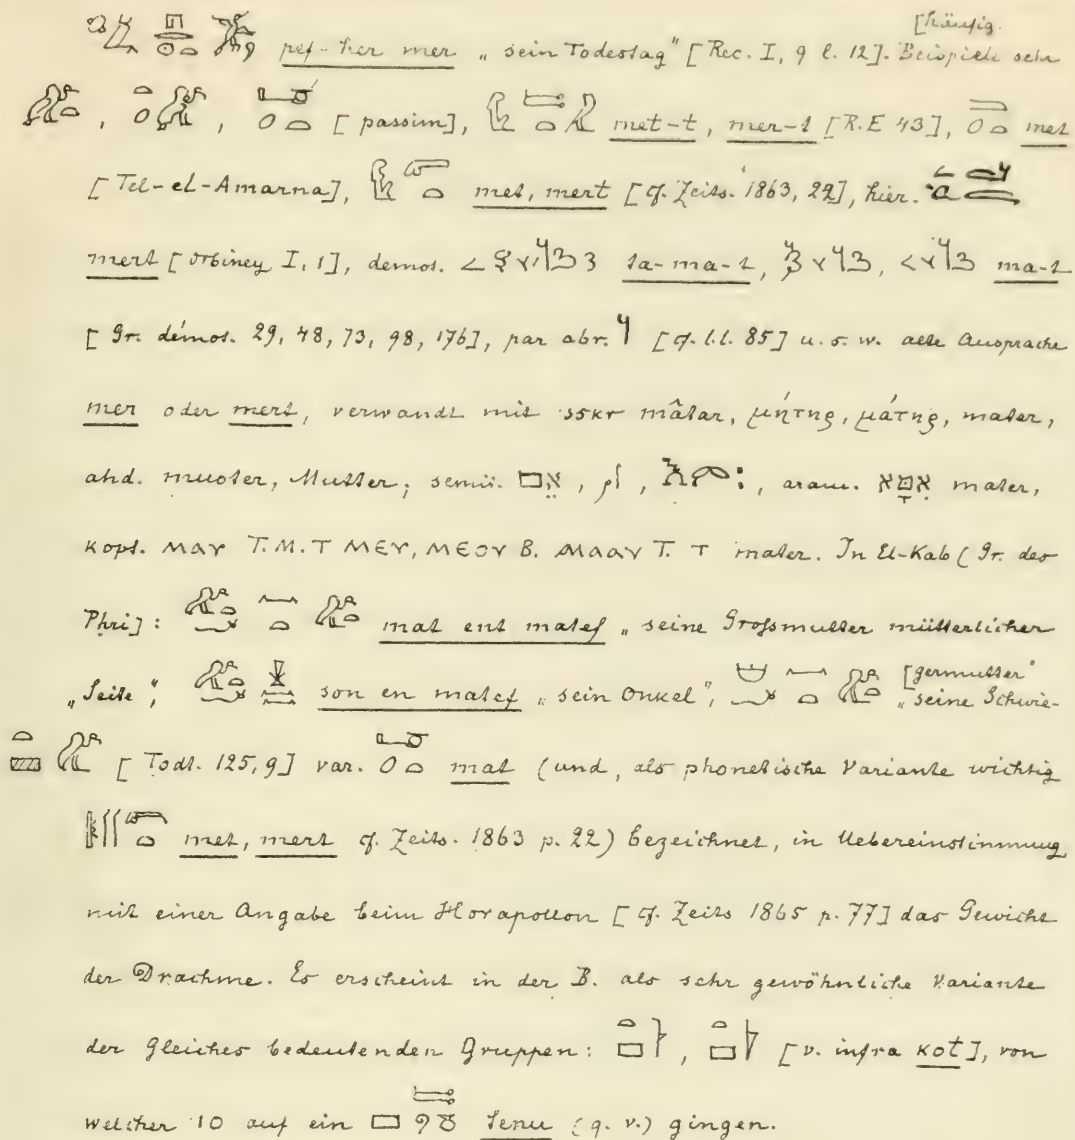 [häufig.
pef-her mer „sein Todestag" [Rec. I, 9 l. 12]. Beispiele sehr
, , [passim], met-t, mer-t [R.E 43], met
[Tel-el-Amarna], met, mert [cf. Zeits. 1863, 22], hier.
mert [Orbiney I, 1], demot. ta-ma-t, , ma-t
[Gr. démot. 29, 48, 73, 98, 176], par abr. [cf. l.l. 85] u. s. w. alte Aussprache
mer oder mert, verwandt mit sskr mâtar, μήτης, μάτης, mater,
ahd. muoter, Mutter; semit. אֵם, ام, እም፡, aram. אִמָּא mater,
kopt. ⲙⲁⲩ T. M. T ⲙⲉⲩ, ⲙⲉⲟⲩ B. ⲙⲁⲁⲩ T. T mater. In El-Kab (Gr. des
Phri]: mat ent matef „seine Grofsmutter mütterlicher
„Seite", son en matef „sein Onkel", „seine Schwie-
[germutter"
[Todt. 125, 9] var. mat (und, als phonetische Variante wichtig
met, mert cf. Zeits. 1863 p. 22) bezeichnet, in Uebereinstimmung
mit einer Angabe beim Horapollon [cf. Zeits 1865 p. 77] das Gewicht
der Drachme. Es erscheint in der B. als sehr gewöhnliche Variante
der Gleiches bedeutenden Gruppen: , [v. infra kot], von
welcher 10 auf ein tenu (q. v.) gingen.